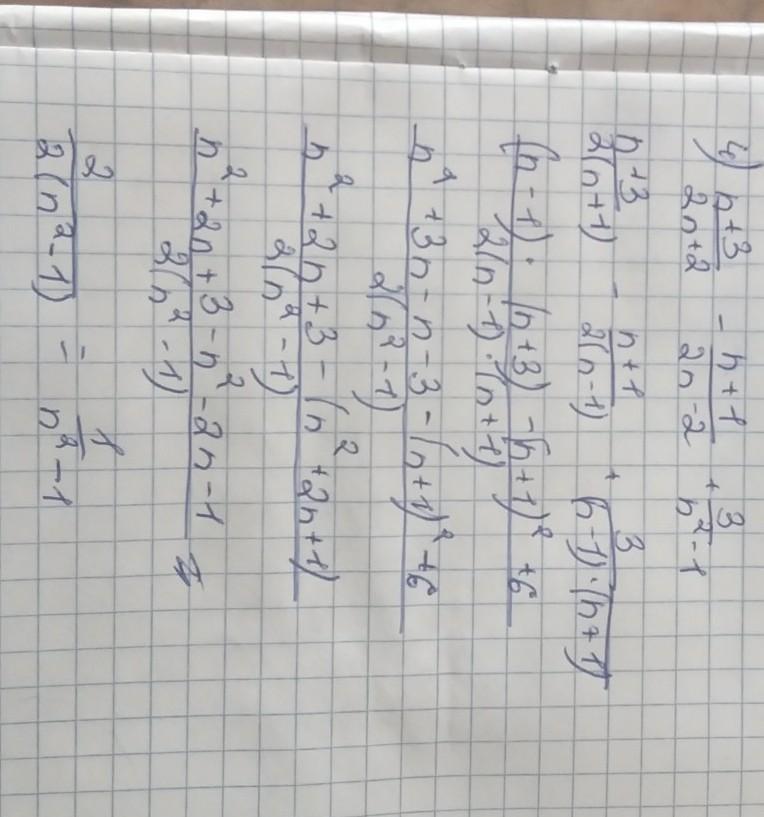 4) n+3/2n+2 - n+1/2n-2 + 3/n²-1
n+3/2(n+1) - n+1/2(n-1) + 3/(n-1)·(n+1)
(n-1)·(n+3)-(n+1)²+6/2(n-1)·(n+1)
n²+3n-n-3-(n+1)²+6/2(n²-1)
n²+2n+3-(n²+2n+1)/2(n²-1)
n²+2n+3-n²-2n-1/2(n²-1)
2/2(n²-1) = 1/n²-1